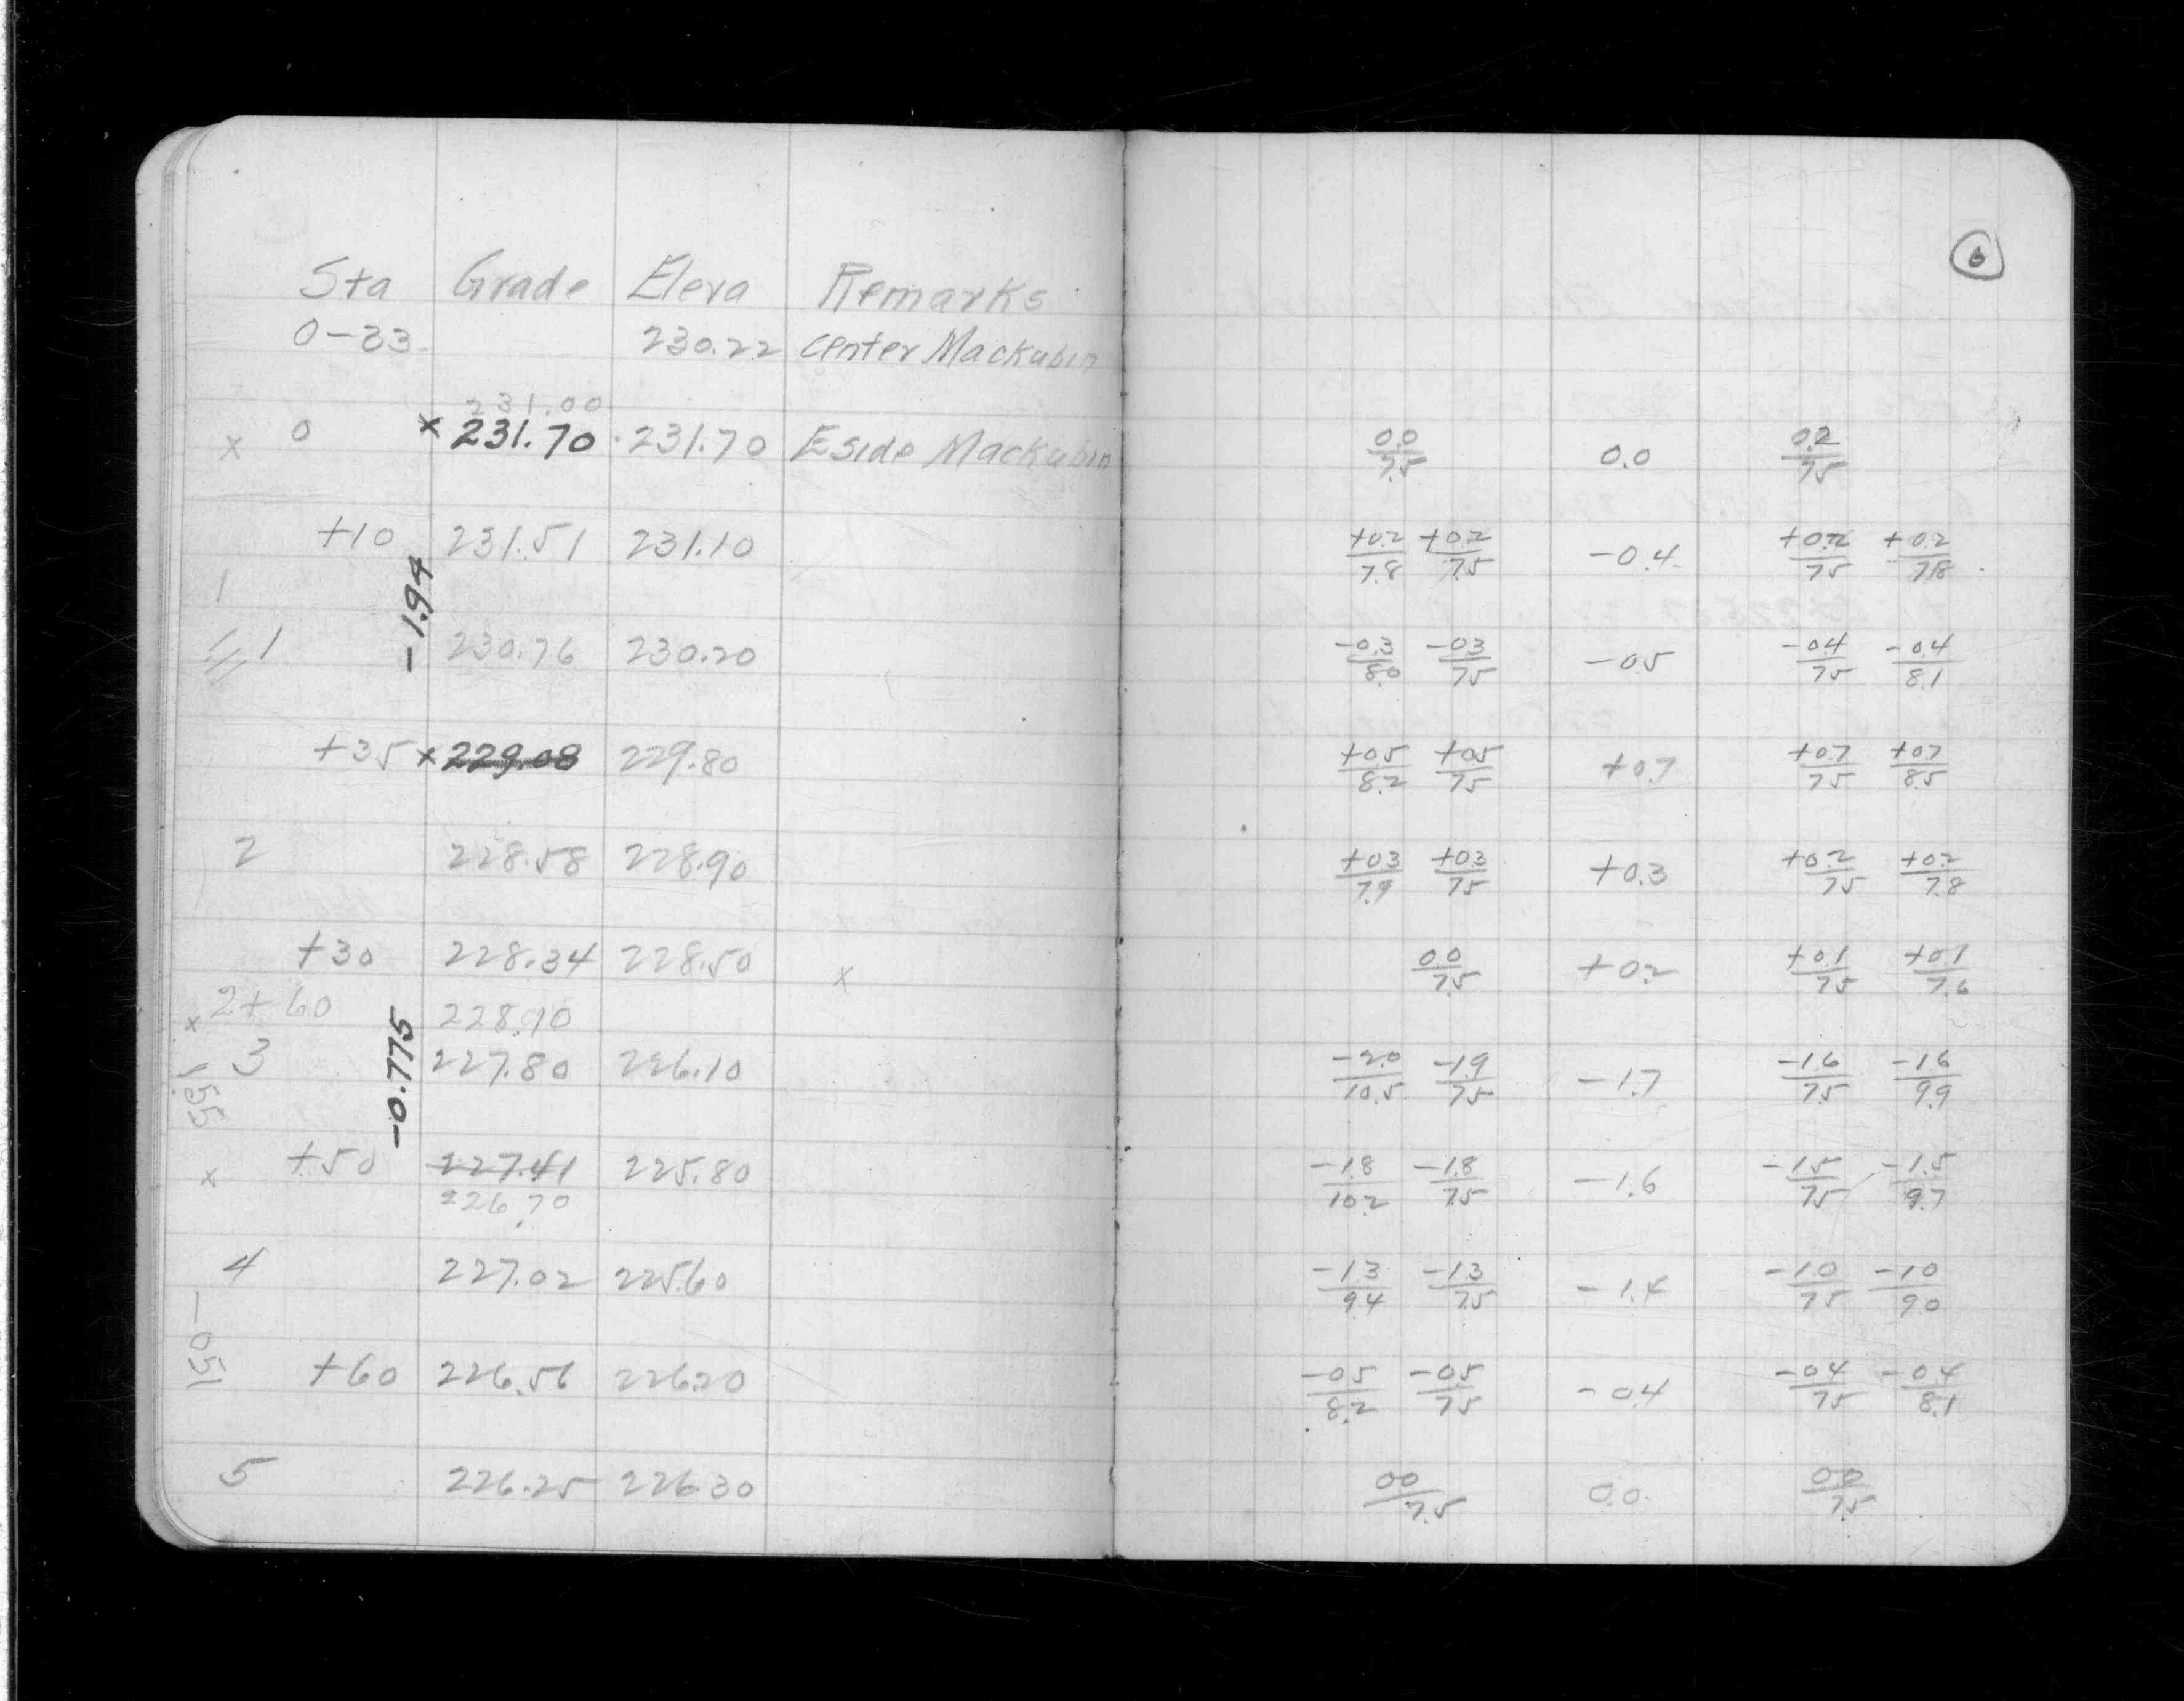 6
Sta Grade Eleva Remarks
0-33 230.22 center Mackubin
231.00
x 0 x 231.70 231.70 E side Mackubin 0.0/7.5 0.0 0.2/7.5
+10 231.51 231.10 +0.2/7.8 +0.2/7.5 -0.4 +0.2/7.5 +0.2/7.8
1
-1.94
1 230.76 230.20 -0.3/8.0 -0.3/7.5 -0.5 -0.4/7.5 -0.4/8.1
+35 x 229.08 229.80 +0.5/8.2 +0.5/7.5 +0.7 +0.7/7.5 +0.7/8.5
2 228.58 228.90 +0.3/7.9 +0.3/7.5 +0.3 +0.2/7.5 +0.2/7.8
+30 228.34 228.50 x 0.0/7.5 +0.2 +0.1/7.5 +0.1/7.6
x 2+60 228.10
-0.775
3 227.80 226.10 -2.0/10.5 -1.9/7.5 -1.7 -1.6/7.5 -1.6/9.9
1.55
x +50 227.41 225.80 -1.8/10.2 -1.8/7.5 -1.6 -1.5/7.5 -1.5/9.7
226.70
4 227.02 225.60 -1.3/9.4 -1.3/7.5 -1.4 -1.0/7.5 -1.0/9.0
-051
+60 226.56 226.20 -0.5/8.2 -0.5/7.5 -0.4 -0.4/7.5 -0.4/8.1
5 226.25 226.30 0.0/7.5 0.0 0.0/7.5